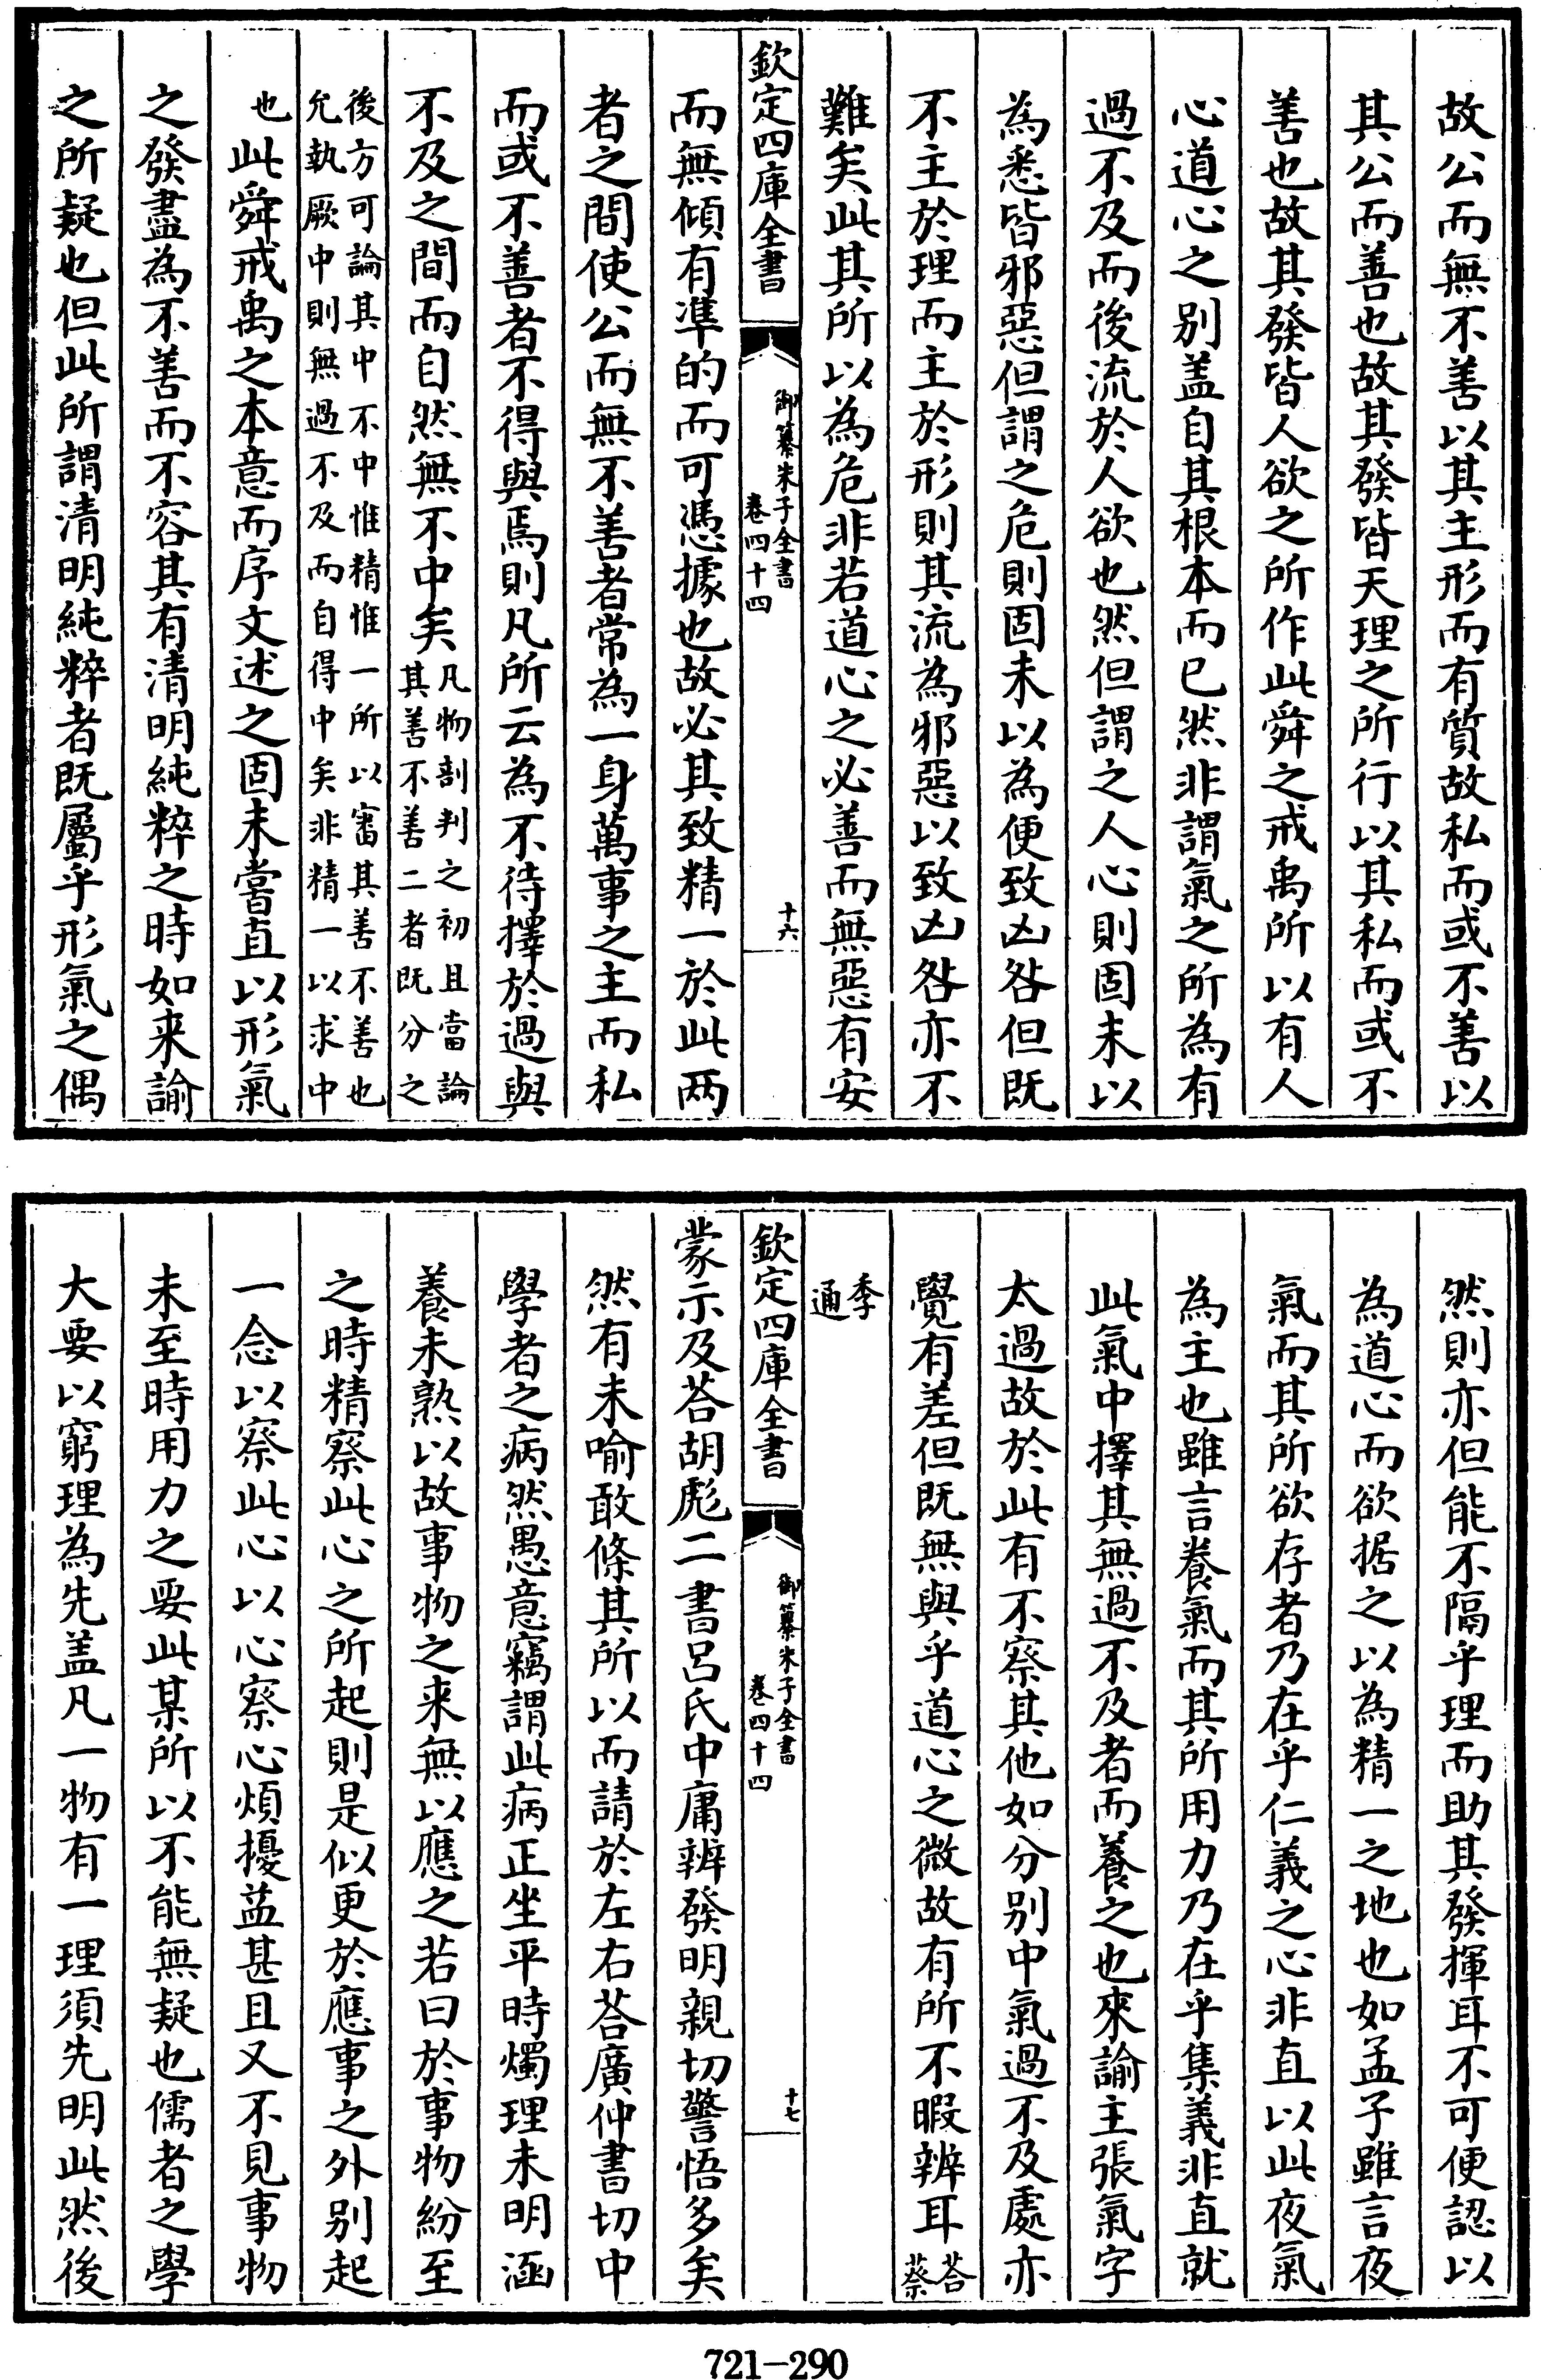 故公而無不善以其主形而有質故私而或不善以
其公而善也故其發皆天理之所行以其私而或不
善也故其發皆人欲之所作此舜之戒禹所以有人
心道心之别盖自其根本而已然非謂氣之所為有
過不及而後流於人欲也然但謂之人心則固未以
為悉皆邪惡但謂之危則固未以為便致凶咎但既
不主於理而主於形則其流為邪惡以致凶咎亦不
難矣此其所以為危非若道心之必善而無惡有安
欽定四庫全書
御纂朱子全書
卷四十四
十六
而無傾有凖的而可憑據也故必其致精一於此两
者之間使公而無不善者常為一身萬事之主而私
而或不善者不得與焉則凡所云為不待擇於過與
不及之間而自然無不中矣凡物剖判之初且當論
其善不善二者既分之
後方可論其中不中惟精惟一所以審其善不善也
允執厥中則無過不及而自得中矣非精一以求中
也此舜戒禹之本意而序文述之固未嘗直以形氣
之發盡為不善而不容其有清明純粹之時如来諭
之所疑也但此所謂清明純粹者既屬乎形氣之偶
然則亦但能不隔乎理而助其發揮耳不可便認以
為道心而欲据之以為精一之地也如孟子雖言夜
氣而其所欲存者乃在乎仁義之心非直以此夜氣
為主也雖言養氣而其所用力乃在乎集義非直就
此氣中擇其無過不及者而養之也來諭主張氣字
太過故於此有不察其他如分别中氣過不及處亦
覺有差但既無與乎道心之微故有所不暇辨耳荅
蔡
季
通
欽定四庫全書
御纂朱子全書
卷四十四
十七
蒙示及荅胡彪二書呂氏中庸辨發明親切警悟多矣
然有未喻敢條其所以而請於左右荅廣仲書切中
學者之病然愚意竊謂此病正坐平時燭理未明涵
養未熟以故事物之来無以應之若曰於事物紛至
之時精察此心之所起則是似更於應事之外别起
一念以察此心以心察心煩擾益甚且又不見事物
未至時用力之要此某所以不能無疑也儒者之學
大要以窮理為先盖凡一物有一理須先明此然後
721-290